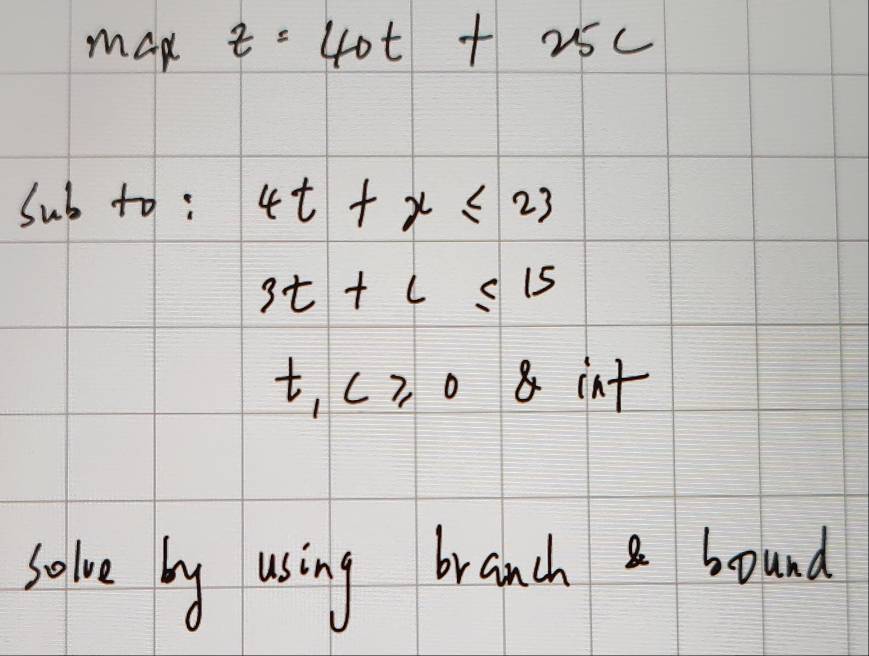 max z = 40t + 25c
Sub to: 4t + x ≤ 23
3t + c ≤ 15
t, c ≥ 0 & int
solve by using branch & bound